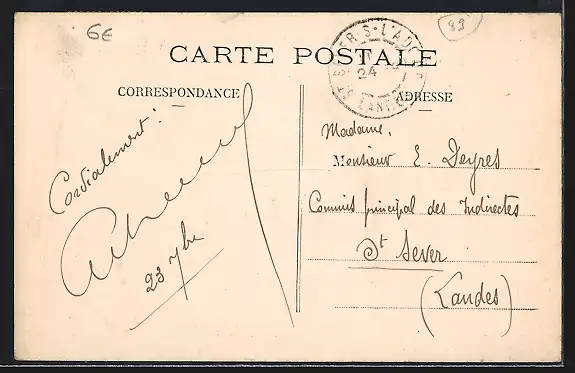 6€
83
CARTE POSTALE
24
LANDES
CORRESPONDANCE
ADRESSE
Cordialement !
23 7bre
Madame,
Monsieur E. Deyres
Commis principal des Indirectes
St Sever
(Landes)